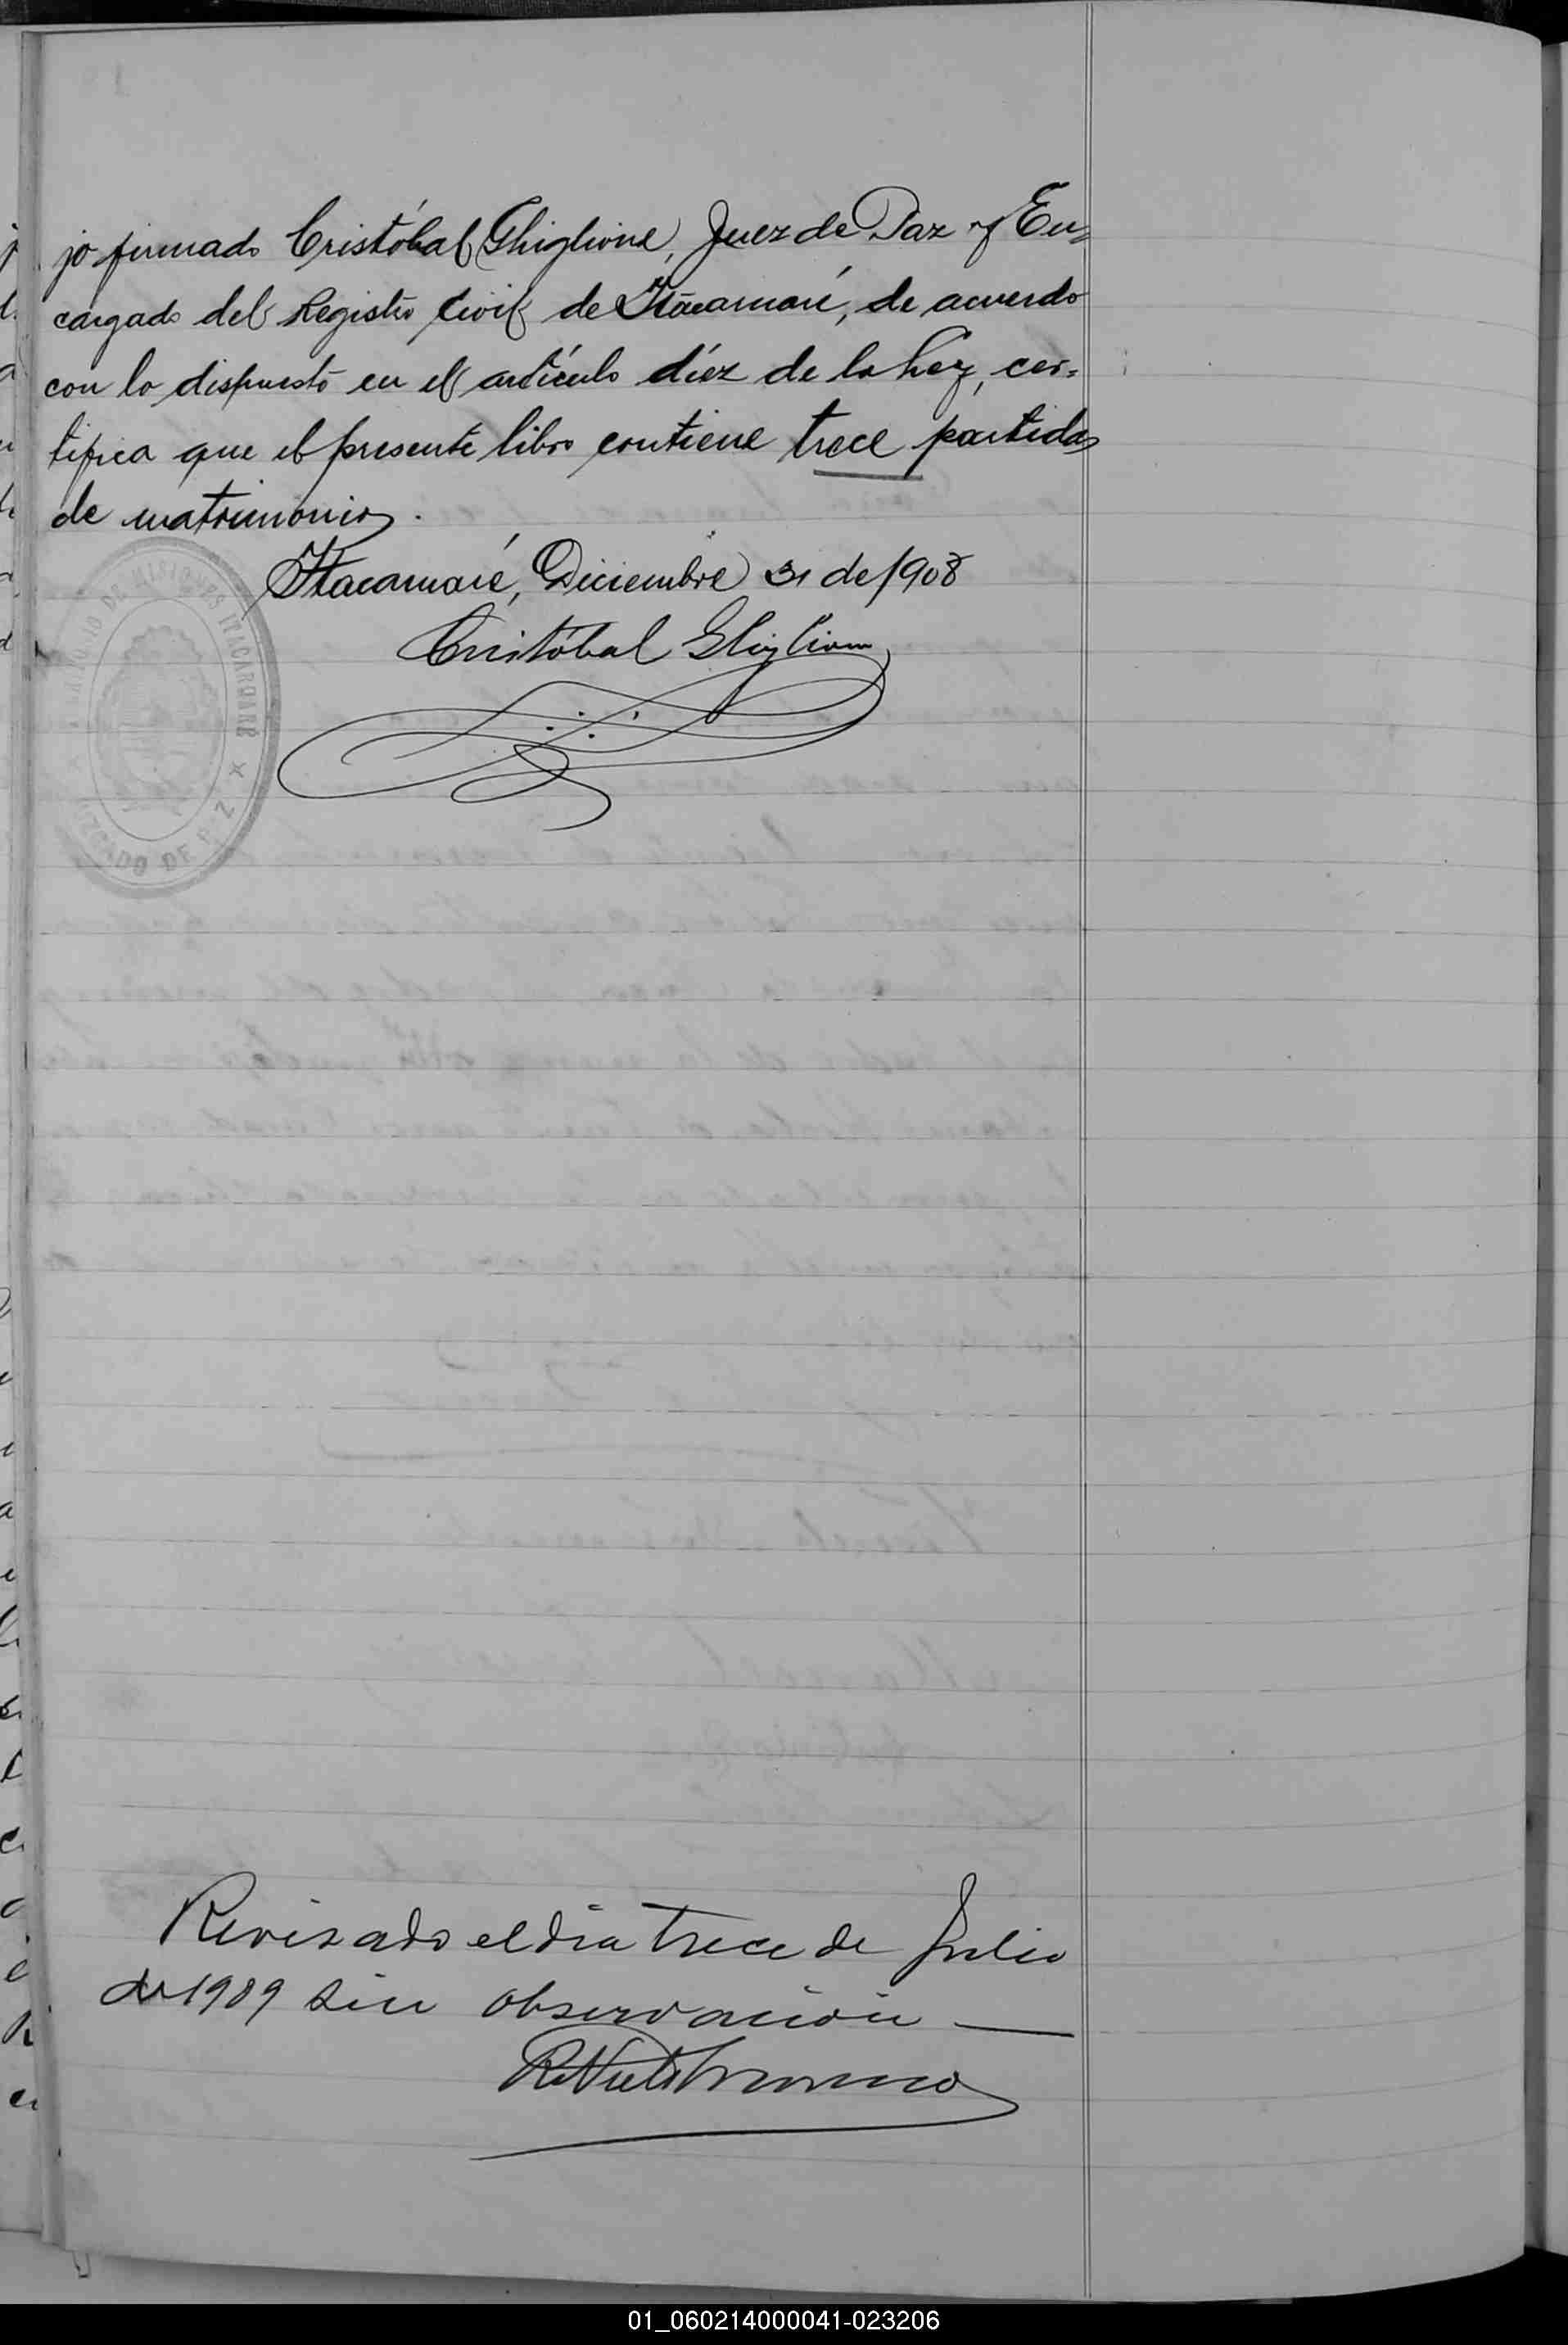 jo firmado Cristóbal Ghiglione, Juez de Paz y En-
cargado del Registro Civil de Itacaruaré, de acuerdo
con lo dispuesto en el artículo diéz de la Ley, cer=
tifica que el presente libro contiene trece partidas
de matrimonios.
Itacaruaré, Diciembre 31 de 1908
Cristóbal Ghiglione
TERRITORIO DE MISIONES ITACARUARÉ
JUZGADO DE PAZ
Revisado el dia trece de Julio
de 1909 sin observación
01_060214000041-023206